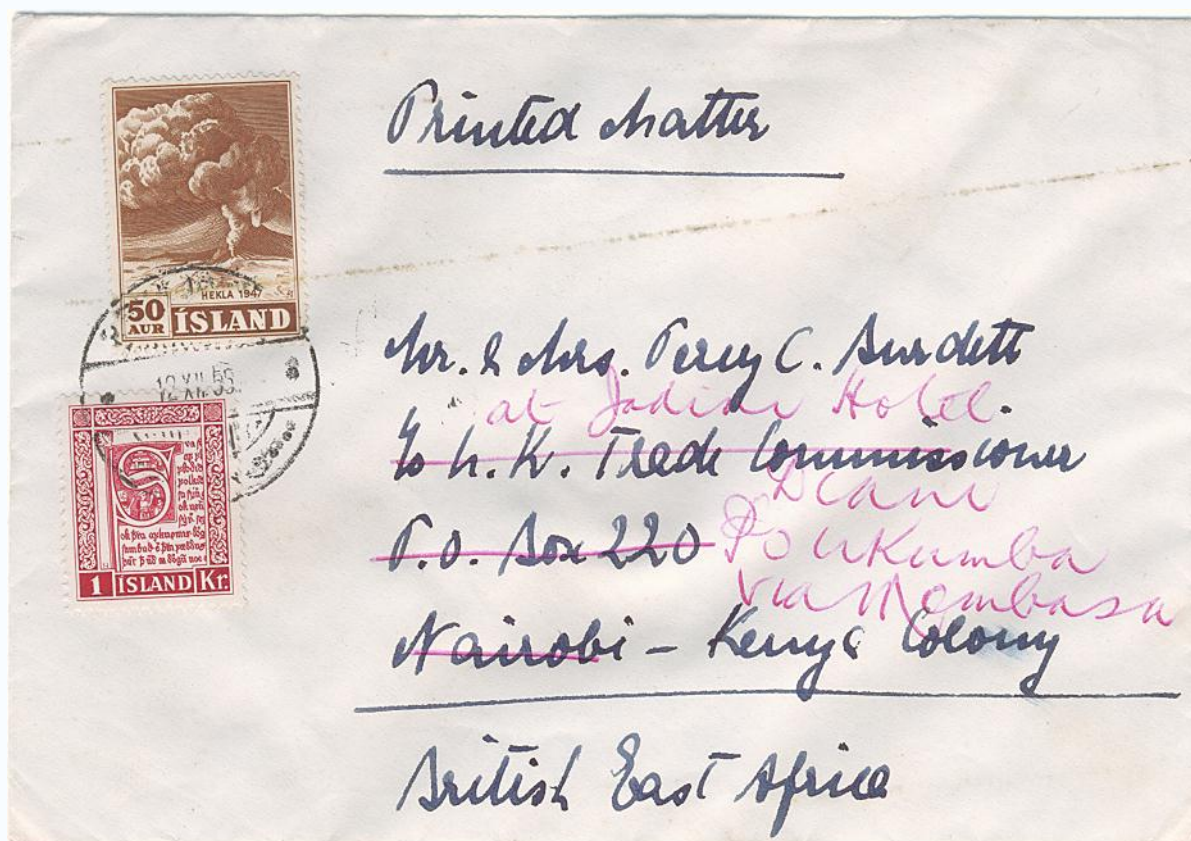 Printed Matter
HEKLA 1947
50
AUR
ÍSLAND
12.XII.
1 ÍSLAND Kr.
Mr. & Mrs. Percy C. Burdett
at Jadini Hotel.
c/o U.K. Trade Commissioner
Diani
P.O. Box 220
PO Ukumba
via Mombasa
Nairobi - Kenya Colony
British East Africa